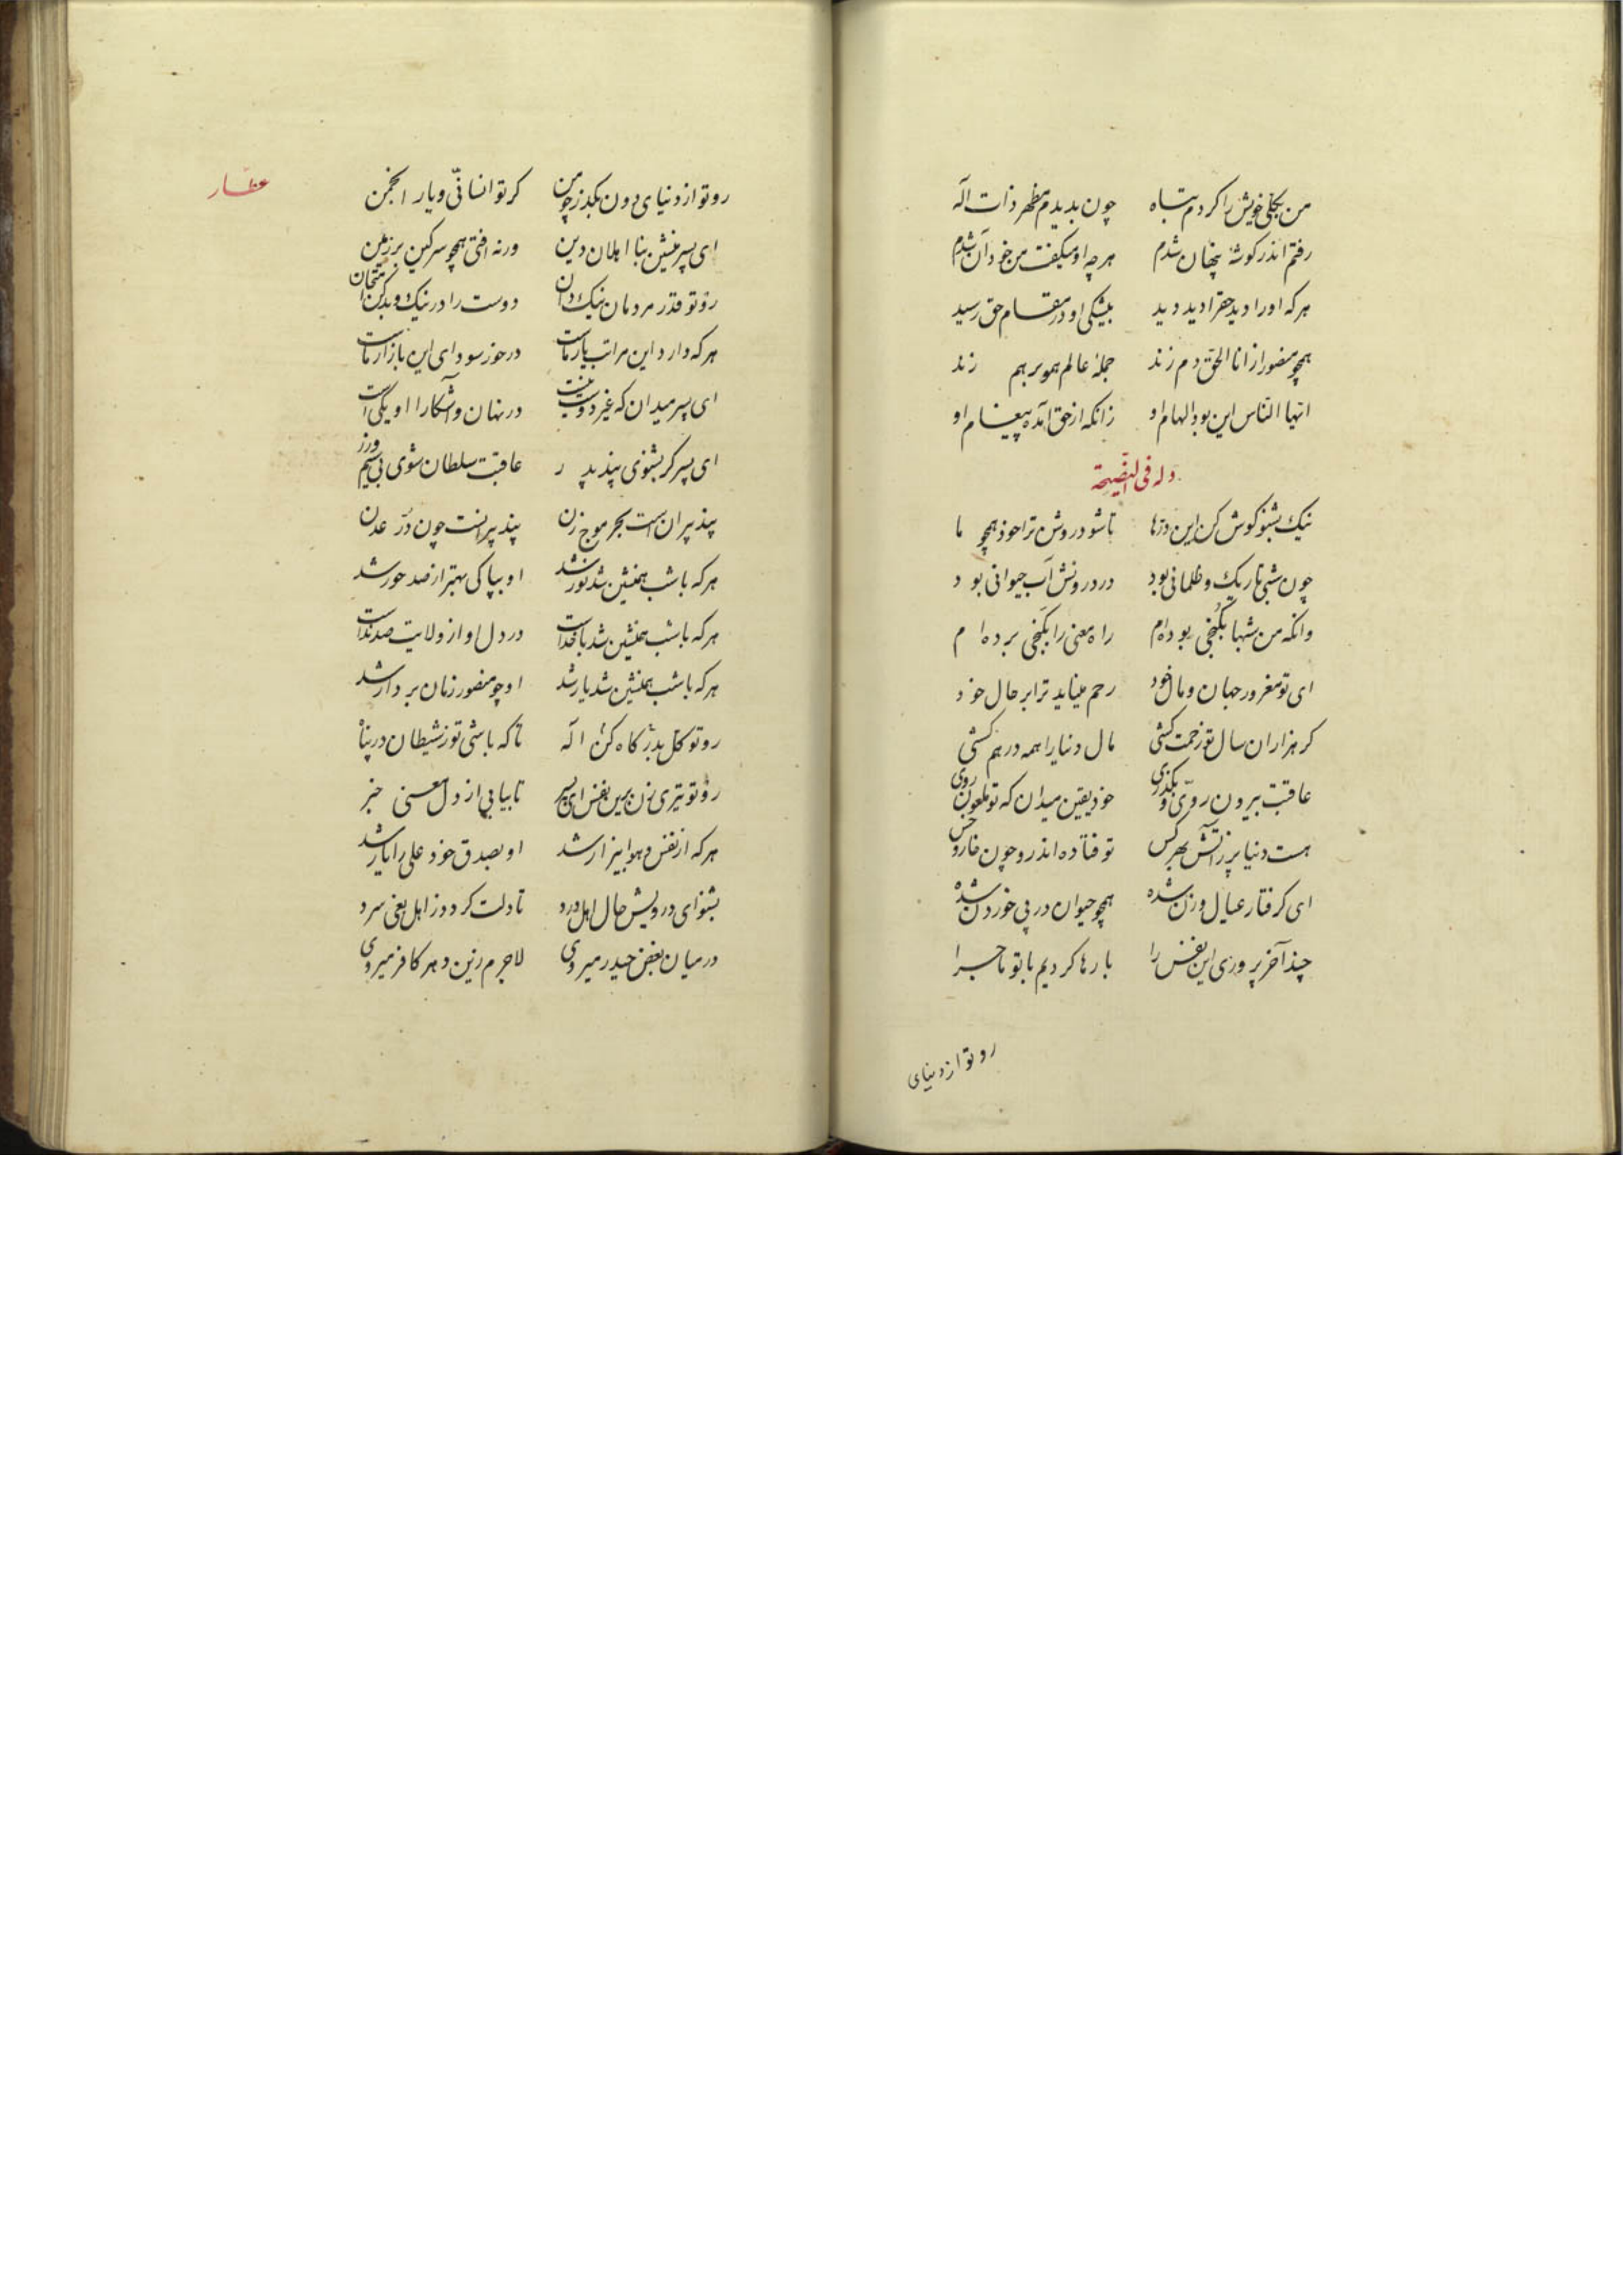 من بکلی خویش را کردم تباه چون بدیدم مظهر ذات اله
رفتم اندر کوشه پنهان شدم هرچه او میکفت من خود آن شدم
هرکه او را دید حقرا دید دید بیشکی او در مقام حق رسید
همچو منصور از انا الحق دم زند جمله عالم همو برهم زند
ایها الناس این بود الهام او زانکه از حق آمده پیغام او
وله فی النصیحة
نیک بشنو کوش کن این درّها تا شود روشن ترا خود همچو ما
چون شبی تاریک و ظلمانی بود در درونش آب حیوانی بود
وانکه من شبها بکنجی بوده‌ام راه معنی را بکنجی برده‌ام
ای تو مغرور جهان و مال خود رحم میناید ترا بر حال خود
کر هزاران سال تو زحمت کشی مال دنیا را همه درهم کشی
عاقبت بیرون روی و بکذری خود یقین میدان که تو ملعون روی
هست دنیا پر ز آتش بهر کس تو فتاده اندرو چون خار و خس
ای کرفتار عیال و زن شده همچو حیوان در پی خوردن شده
چند آخر پروری این نفس را بارها کردیم با تو ماجرا
رو تو از دنیای
عطّار
رو تو از دنیای دون بکذر چو من کر تو انسانی و یار انجمن
ای پسر منشین بنا اهلان دین ورنه افتی همچو سرکین بر زمین
رو تو قدر مردمان نیک دان دوست را در نیک و بد کن امتحان
هرکه دارد این مراتب یار ماست در خور سودای این بازار ماست
ای پسر میدان که غیر دوست نیست در نهان و آشکارا او یکی است
ای پسر کر بشنوی پند پدر عاقبت سلطان شوی بی سیم و زر
پند پیران است بحر موج زن پند پیرانست چون درّ عدن
هرکه با شب همنشین شد نور شد او بپاکی بهتر از صد حور شد
هرکه با شب همنشین شد با خداست در دل او از ولایت صد نداست
هرکه با شب همنشین شد یار شد او چو منصور زمان بر دار شد
رو توکل بدرکاه کن اله تا که باشی تو ز شیطان در پناه
رو تو تیری زن برین نفس ای پسر تا بیابی از دل معنی خبر
هرکه از نفس و هوا بیزار شد او بصدق خود علی را یار شد
بشنو ای درویش حال اهل درد تا دلت کردد ز اهل بغی سرد
در میان بغض حیدر میروی لاجرم زین دهر کافر میروی